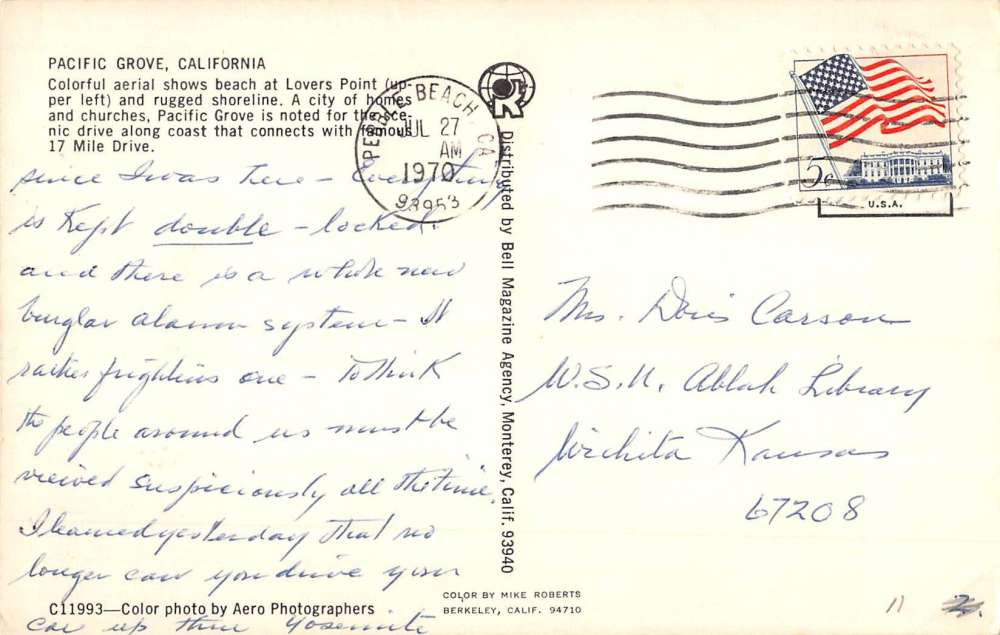 PACIFIC GROVE, CALIFORNIA
Colorful aerial shows beach at Lovers Point (up-
per left) and rugged shoreline. A city of homes
and churches, Pacific Grove is noted for the sce-
nic drive along coast that connects with famous
17 Mile Drive.
since I was here – Everything
is kept double – locked.
and there is a whole new
burglar alarm system – It
rather frightens one – to think
the people around us must be
viewed suspiciously all the time.
I learned yesterday that no
longer can you drive your
car up thru Yosemite
C11993—Color photo by Aero Photographers
PEBBLE BEACH CA
JUL 27
AM
1970
93953
Distributed by Bell Magazine Agency, Monterey, Calif. 93940
COLOR BY MIKE ROBERTS
BERKELEY, CALIF. 94710
5c
U.S.A.
Mrs. Doris Carson
W.S.U. Ablah Library
Wichita Kansas
67208
11